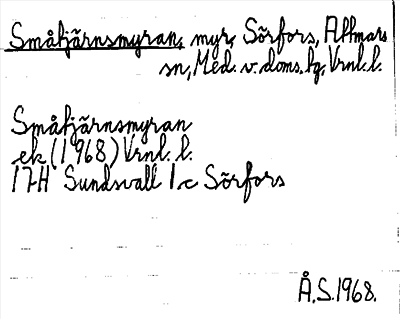 Småtjärnsmyran, myr, Sörfors, Attmars
sn, Med. v. doms. hg, Vrnl. l.
Småtjärnsmyran
ek (1968) Vrnl. l.
17H Sundsvall 1c Sörfors
Å.S. 1968.